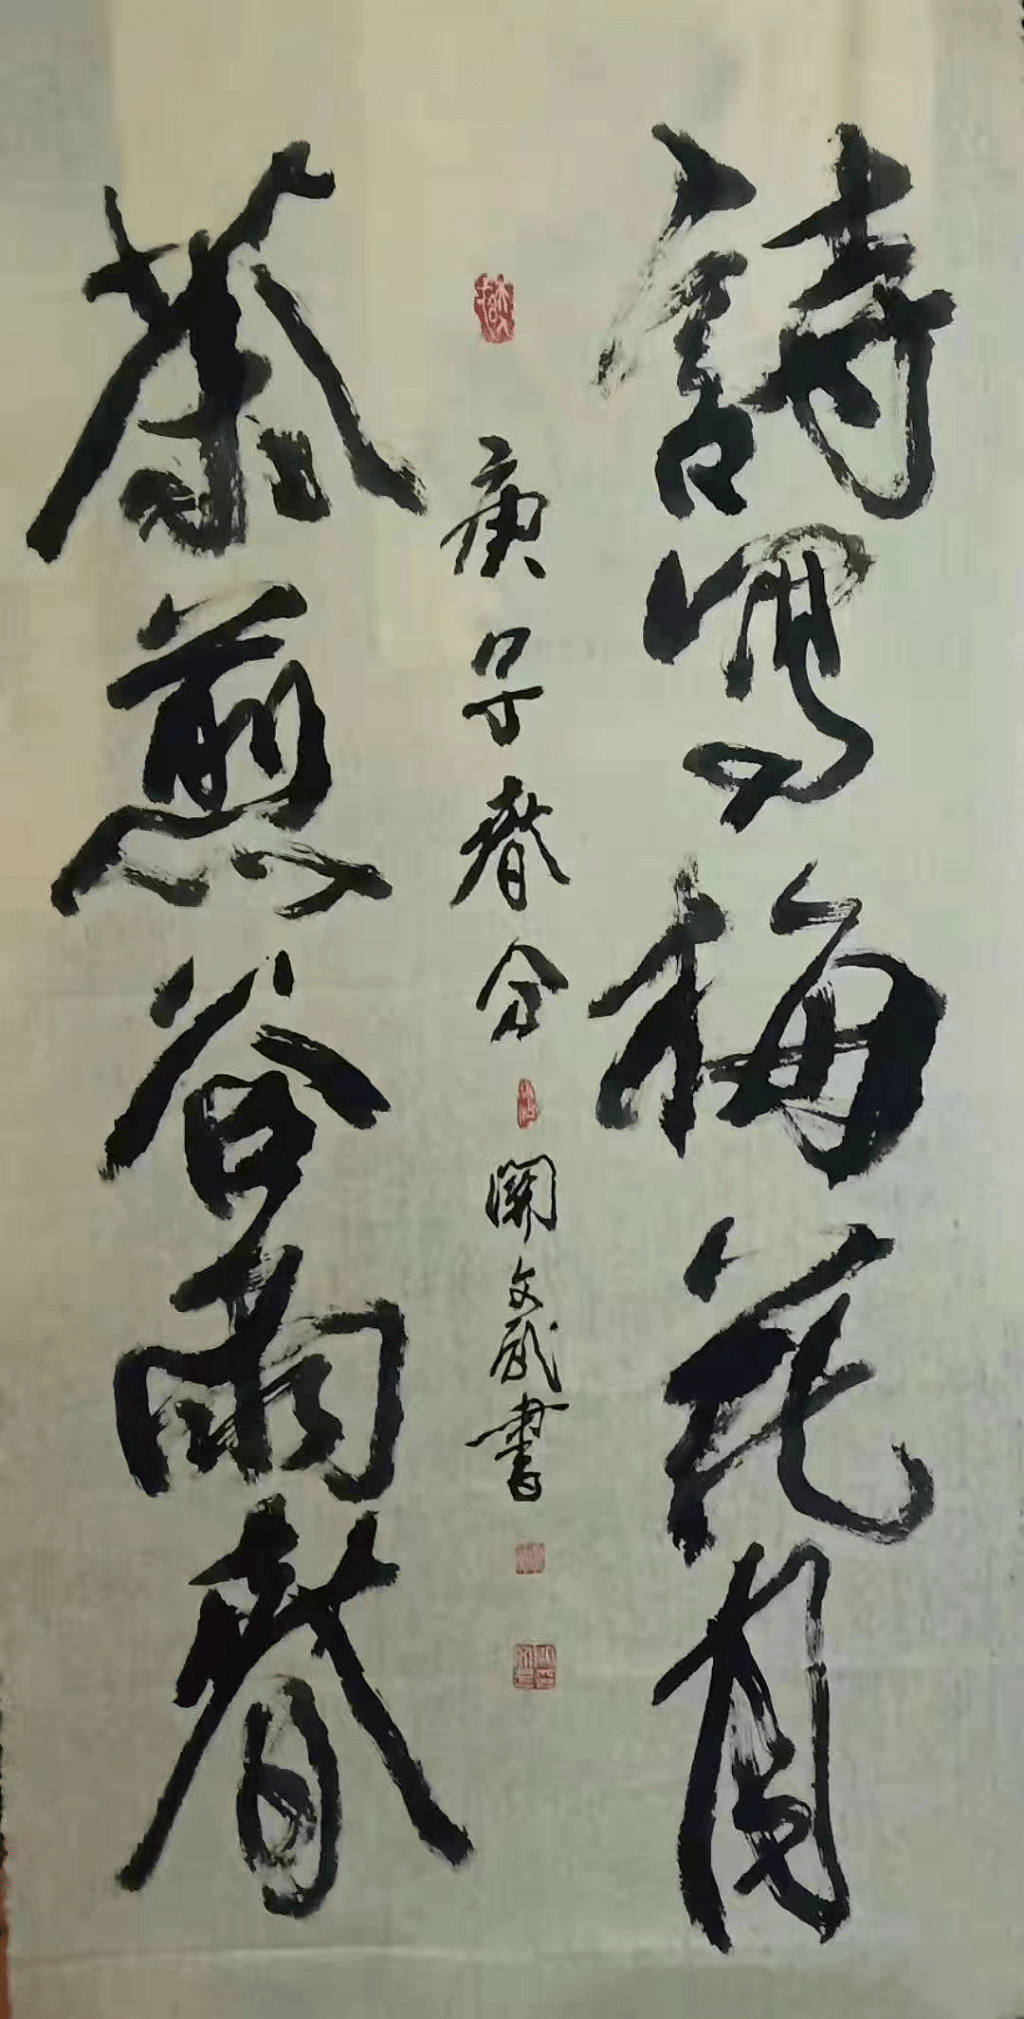 詩寫梅花月
茶煎谷雨春
庚子春分
關文斌書